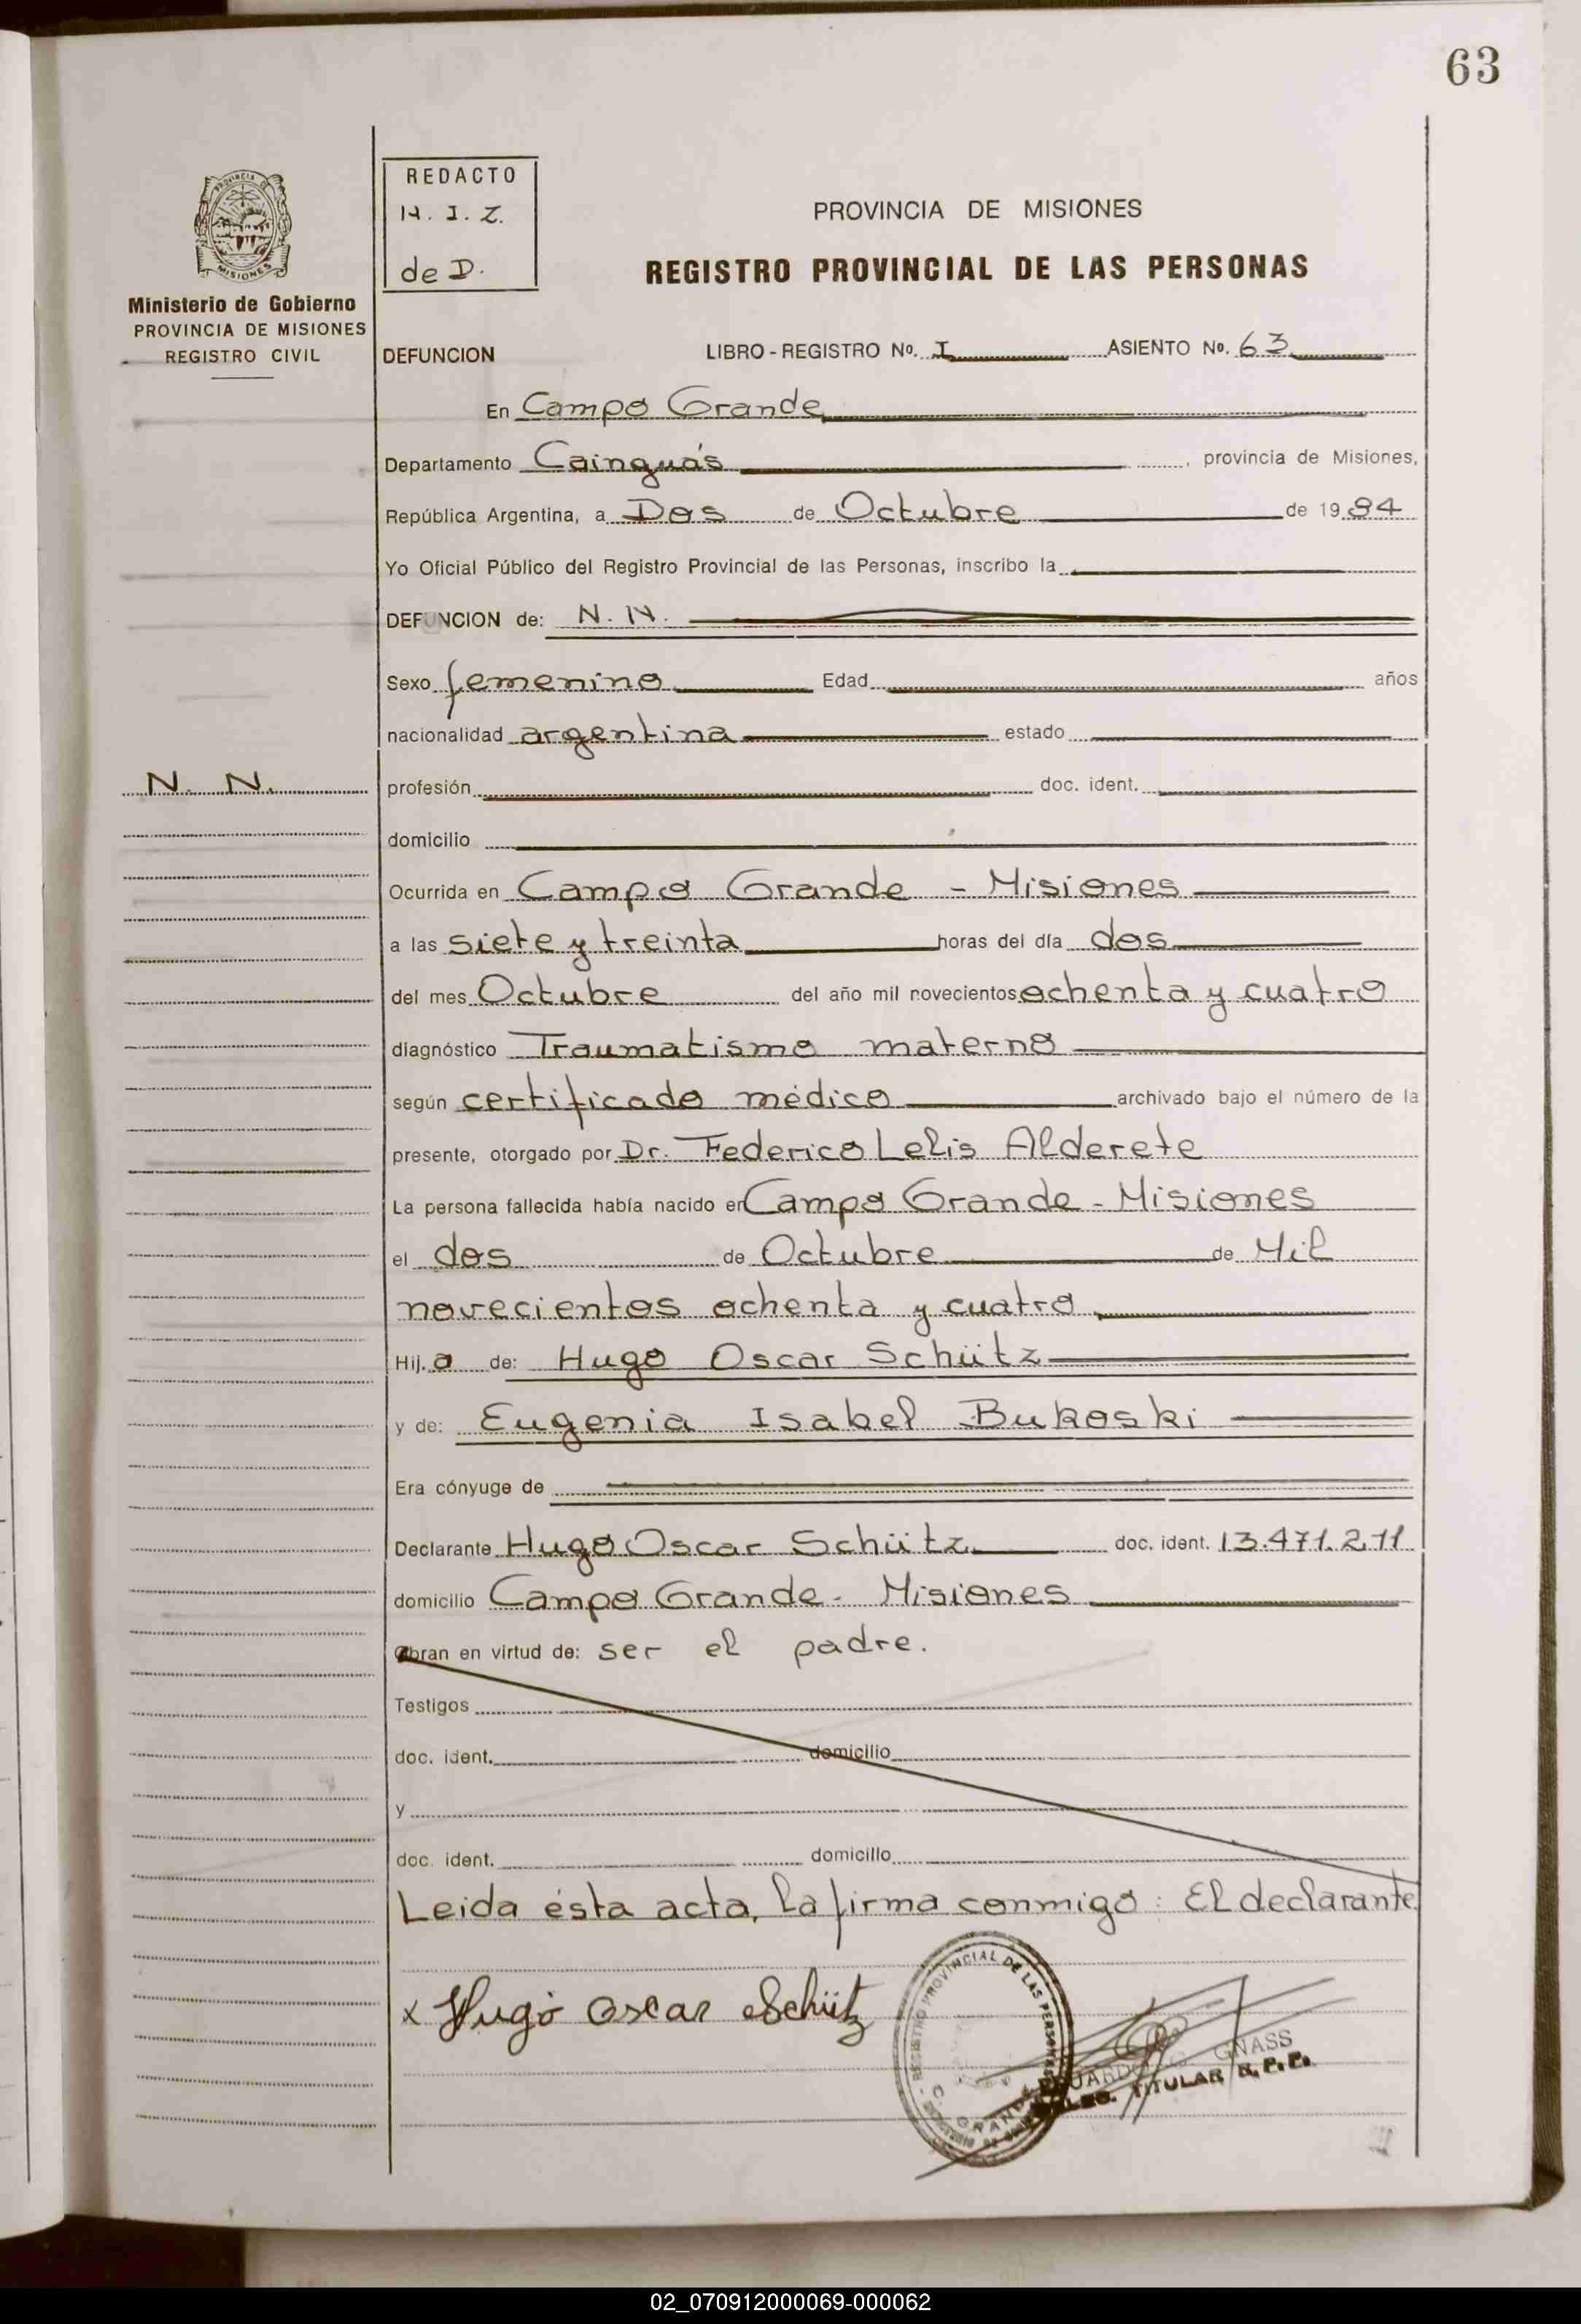 63
PROVINCIA DE
MISIONES
Ministerio de Gobierno
PROVINCIA DE MISIONES
REGISTRO CIVIL
REDACTO
N. I. Z.
de D.
PROVINCIA DE MISIONES
REGISTRO PROVINCIAL DE LAS PERSONAS
DEFUNCION LIBRO - REGISTRO Nº. I ASIENTO Nº. 63
En Campo Grande
Departamento Cainguás, provincia de Misiones,
República Argentina, a Dos de Octubre de 1984
Yo Oficial Público del Registro Provincial de las Personas, inscribo la
DEFUNCION de: N. N.
Sexo femenino Edad años
nacionalidad argentina estado
N. N.
profesión doc. ident.
domicilio
Ocurrida en Campo Grande - Misiones
a las siete y treinta horas del día dos
del mes Octubre del año mil novecientos ochenta y cuatro
diagnóstico Traumatismo materno
según certificado médico archivado bajo el número de la
presente, otorgado por Dr. Federico Lelis Alderete
La persona fallecida había nacido en Campo Grande - Misiones
el dos de Octubre de Mil
novecientos ochenta y cuatro
Hij.a de: Hugo Oscar Schütz
y de: Eugenia Isabel Bukoski
Era cónyuge de
Declarante Hugo Oscar Schütz doc. ident. 13.471.211
domicilio Campo Grande - Misiones
Obran en virtud de: ser el padre.
Testigos
doc. ident. domicilio
y
doc. ident. domicilio
Leida ésta acta, la firma conmigo: El declarante
x Hugo Oscar Schütz
REGISTRO PROVINCIAL DE LAS PERSONAS
GNASS
TITULAR R.P.P.
02_070912000069-000062